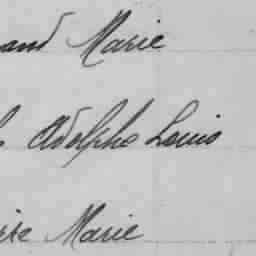 and Marie
Adolphe Louis
Marie